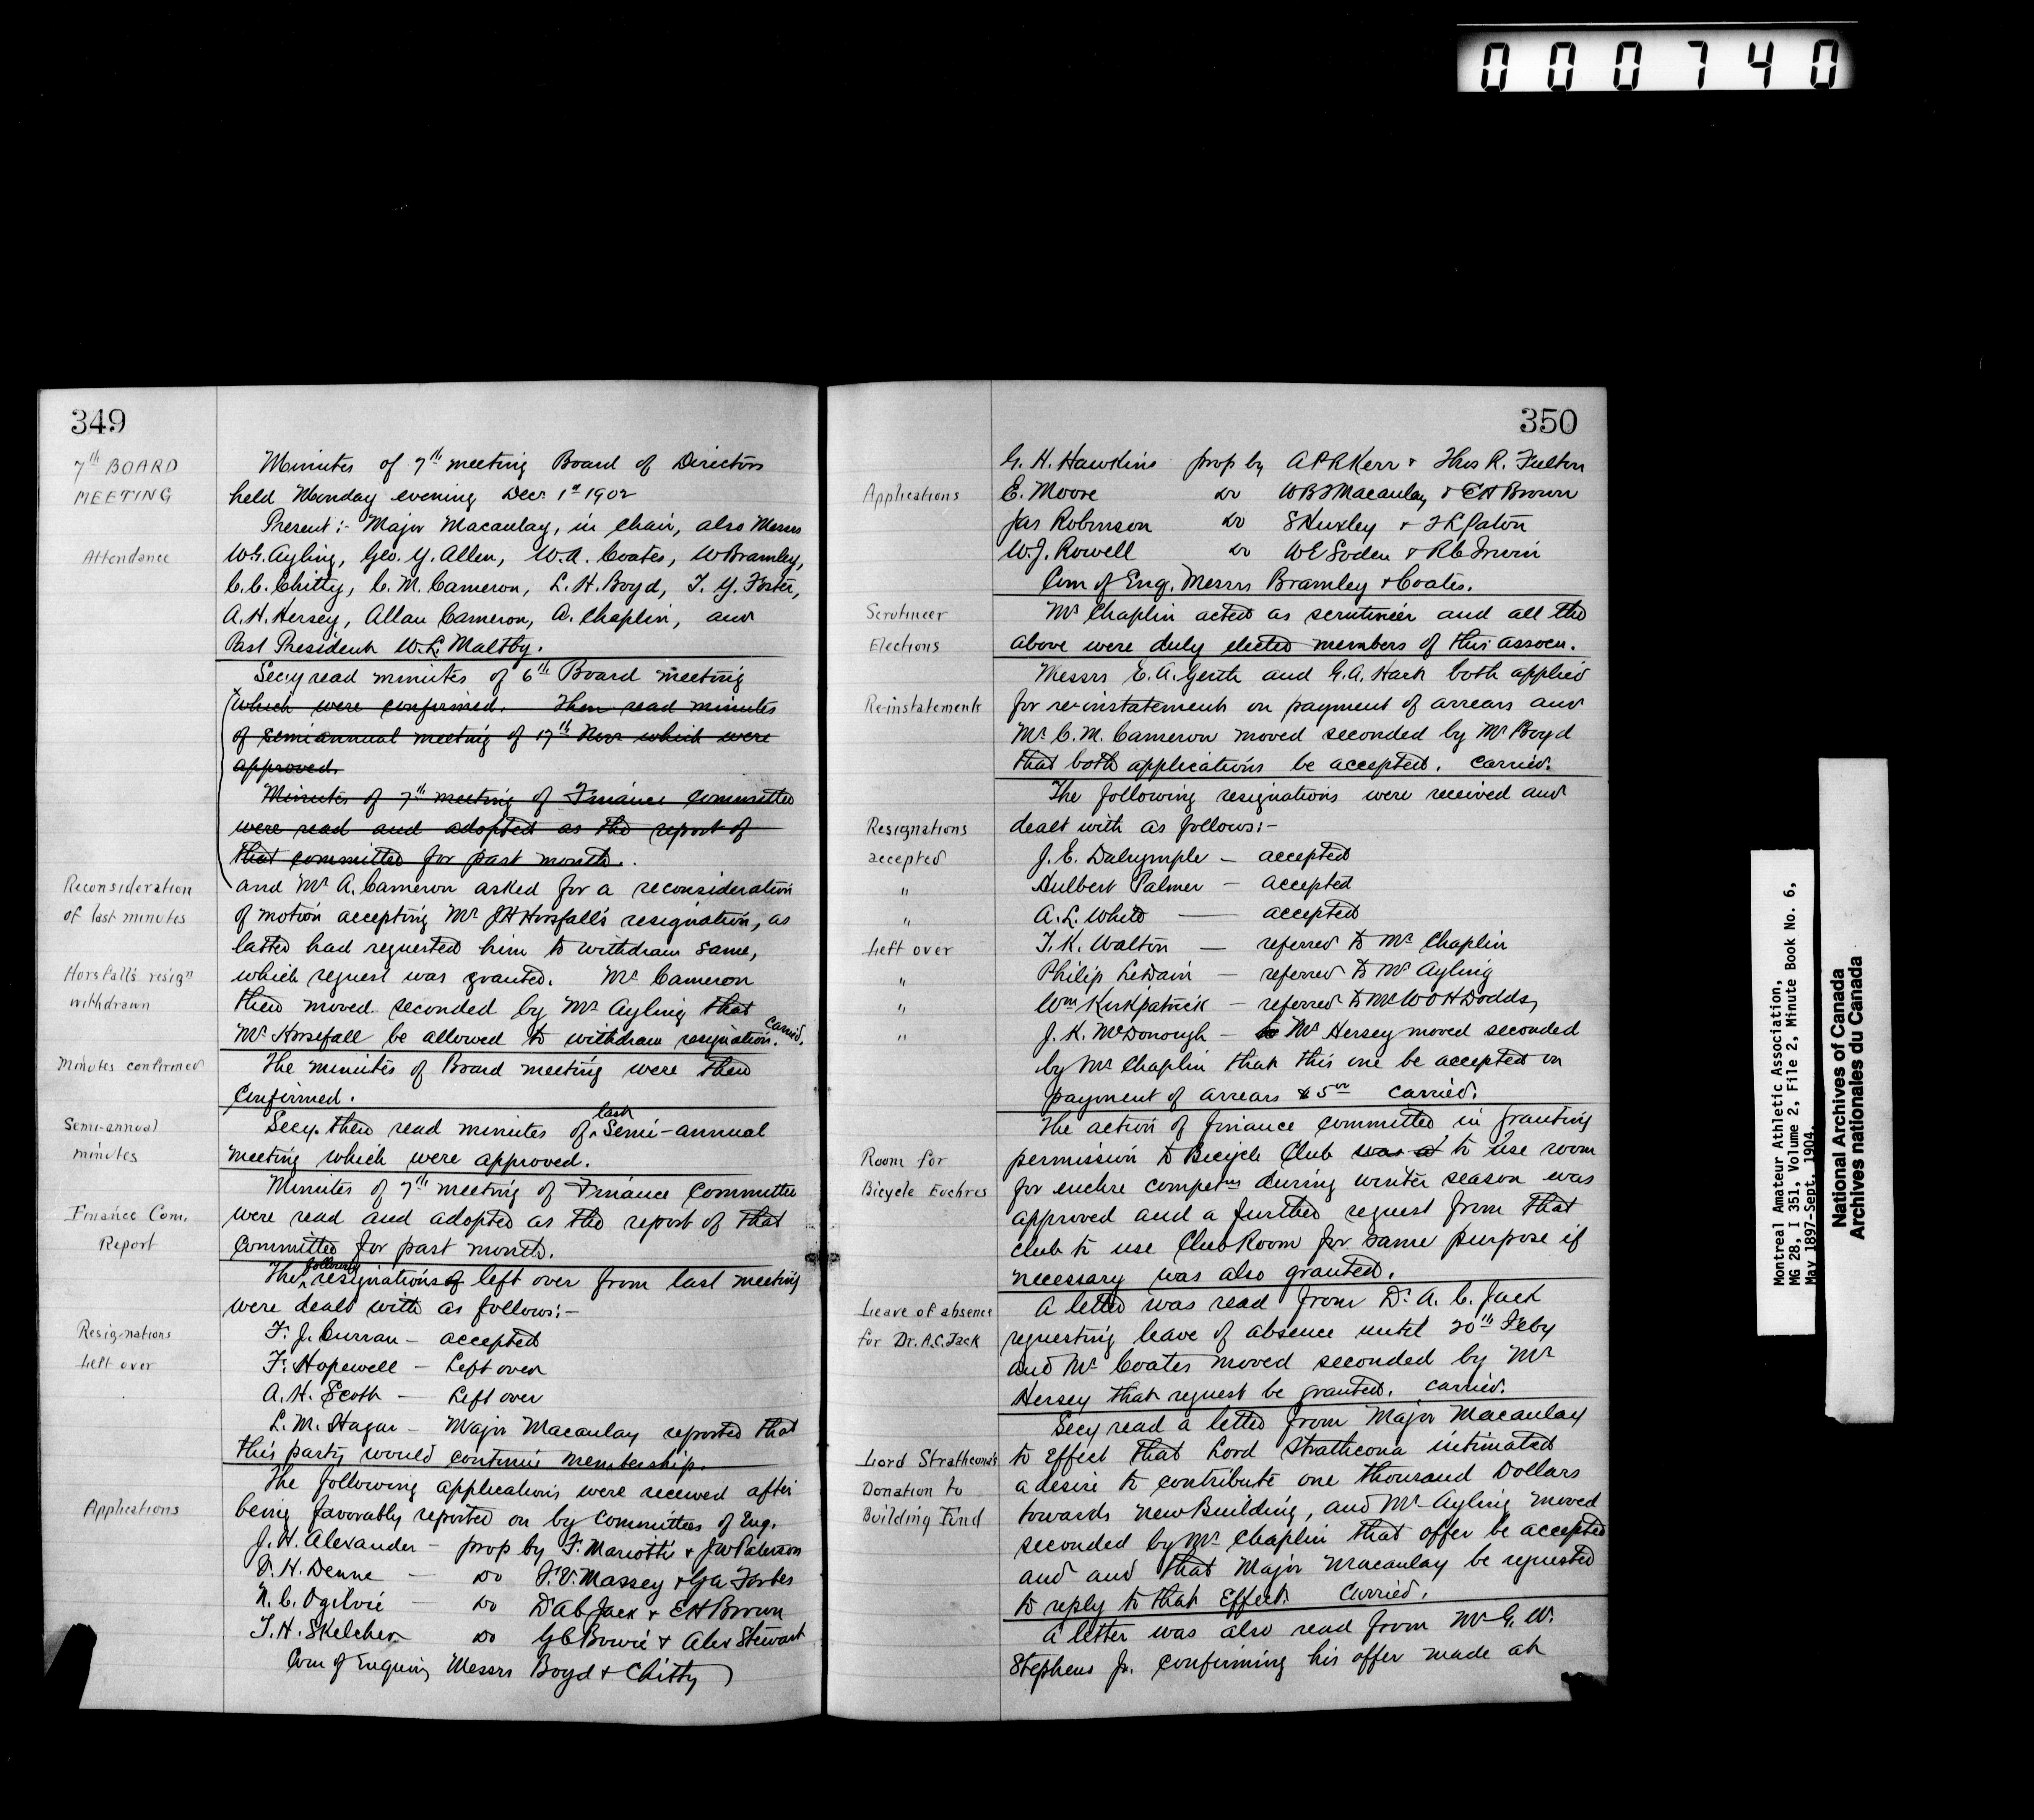 000740
349
7th BOARD
MEETING
Minutes of 7th meeting Board of Directors
held Monday evening Decr 1st 1902
Present :- Major Macaulay, in chair, also Messrs
Attendance
W.G. Ayling, Geo. Y. Allen, W.A. Coates, W Bramley,
C.C. Chitty, C.M. Cameron, L.H. Boyd, T.Y. Foster,
A.H. Hersey, Allan Cameron, A. Chaplin, and
Past President W.L. Maltby.
Secy read minutes of 6th Board meeting
which were confirmed. Then read minutes
of semiannual meeting of 17th Novr which were
approved.
Minutes of 7th meeting of Finance Committee
were read and adopted as the report of
that committee for past month.
Reconsideration
of last minutes
and Mr A. Cameron asked for a reconsideration
of motion accepting Mr J H Horsfall's resignation, as
latter had requested him to withdraw same,
Horsfall's resign
withdrawn
which request was granted. Mr Cameron
then moved seconded by Mr Ayling that
Mr Horsfall be allowed to withdraw resignation. Carried.
Minutes confirmed
The minutes of Board meeting were then
Confirmed.
Semi-annual
minutes
Secy. then read minutes of last Semi-annual
meeting which were approved.
Finance Com.
Report
Minutes of 7th meeting of Finance Committee
were read and adopted as the report of that
Committee for past month.
The following resignations of left over from last meeting
were dealt with as follows:-
Resignations
Left over
F. J. Curran - accepted
F. Hopewell - Left over
A. H. Scott - Left over
L. M. Hagar - Major Macaulay reported that
this party would continue membership.
Applications
The following applications were received after
being favorably reported on by Committees of Enq.
J. H. Alexander - prop by F. Mariotti & J W Paterson
D. H. Denne - Do F.V. Massey & G A Forbes
N. C. Ogilvie - Do Dr A C Jack & E H Brown
T. H. Skelcher Do G C Bowie & Alex Stewart
Com of Enquiry Messrs Boyd & Chitty
350
G. H. Hawkins prop by A P R Kerr & Thos R. Fulton
Applications
E. Moore Do W B T Macaulay & E H Brown
Jas Robinson Do S Huxley & L Paton
W. J. Rowell Do W E Soden & R C Irwin
Com of Enq. Messrs Bramley & Coates.
Scrutineer
Elections
Mr Chaplin acted as scrutineer and all the
above were duly elected members of this assocn.
Re-instatements
Messrs E. A. Gerth and G. A. Hart both applied
for re-instatement on payment of arrears and
Mr C. M. Cameron moved seconded by Mr Boyd
that both applications be accepted. Carried.
The following resignations were received and
Resignations
accepted
dealt with as follows:-
J. E. Dalrymple - accepted
" Hulbert Palmer - accepted
" A. L. White - accepted
Left over T. K. Walton - referred to Mr Chaplin
" Philip LeDain - referred to Mr Ayling
" Wm Kirkpatrick - referred to Mr W O H Dodds,
" J. K. McDonough - to Mr Hersey moved seconded
by Mr Chaplin that this one be accepted on
payment of arrears $5.00 carried.
The action of finance committee in granting
Room for
Bicycle Euchres
permission to Bicycle Club to use room
for euchre compet'ns during winter season was
approved and a further request from that
club to use Club Room for same purpose if
necessary was also granted.
Leave of absence
for Dr. A.C. Jack
A letter was read from Dr. A. C. Jack
requesting leave of absence until 20th Feby
and Mr Coates moved seconded by Mr
Hersey that request be granted. Carried.
Secy read a letter from Major Macaulay
Lord Strathcona's
Donation to
Building Fund
to effect that Lord Strathcona intimated
a desire to contribute one thousand Dollars
towards New Building, and Mr Ayling moved
seconded by Mr Chaplin that offer be accepted
and and that Major Macaulay be requested
to reply to that Effect. Carried.
A letter was also read from Mr G. W.
Stephens Jr. confirming his offer made at
Montreal Amateur Athletic Association,
MG 28, I 351, Volume 2, File 2, Minute Book No. 6,
May 1897-Sept. 1904.
National Archives of Canada
Archives nationales du Canada